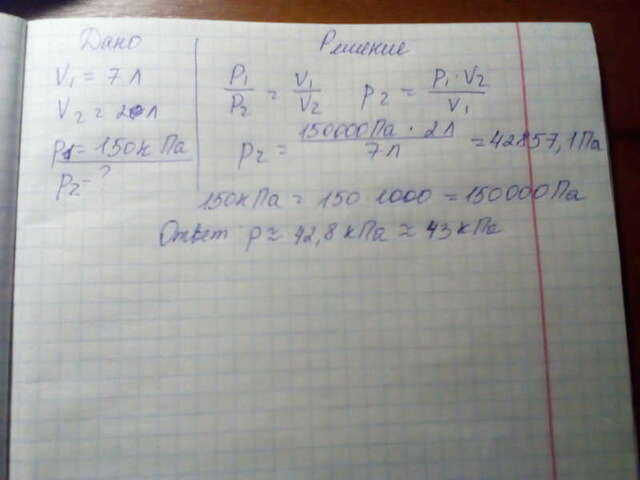 Дано
Решение
V₁ = 7 л
V₂ = 2 л
p₁ = 150 кПа
p₂ - ?
P₁/P₂ = V₁/V₂  p₂ = p₁·V₂/V₁
p₂ = 150000Па · 2л/7л = 42857,1Па
150кПа = 150 1000 = 150000Па
Ответ p ≈ 42,8 кПа ≈ 43 кПа